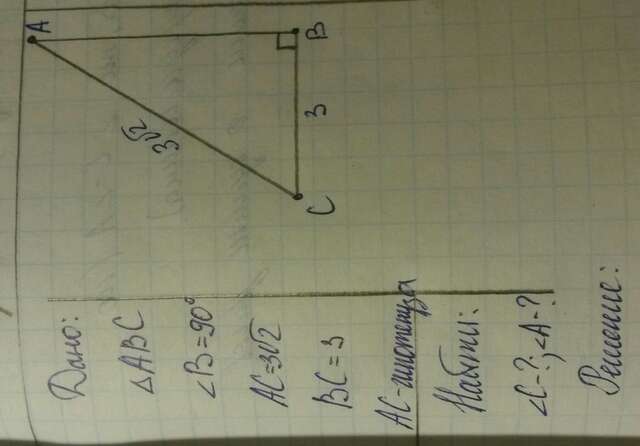 Дано:
△ABC
∠B=90°
AC=3√2
BC=3
AC-гипотенуза
Найти:
∠C-?, ∠A-?
Решение:
A
B
C
3√2
3